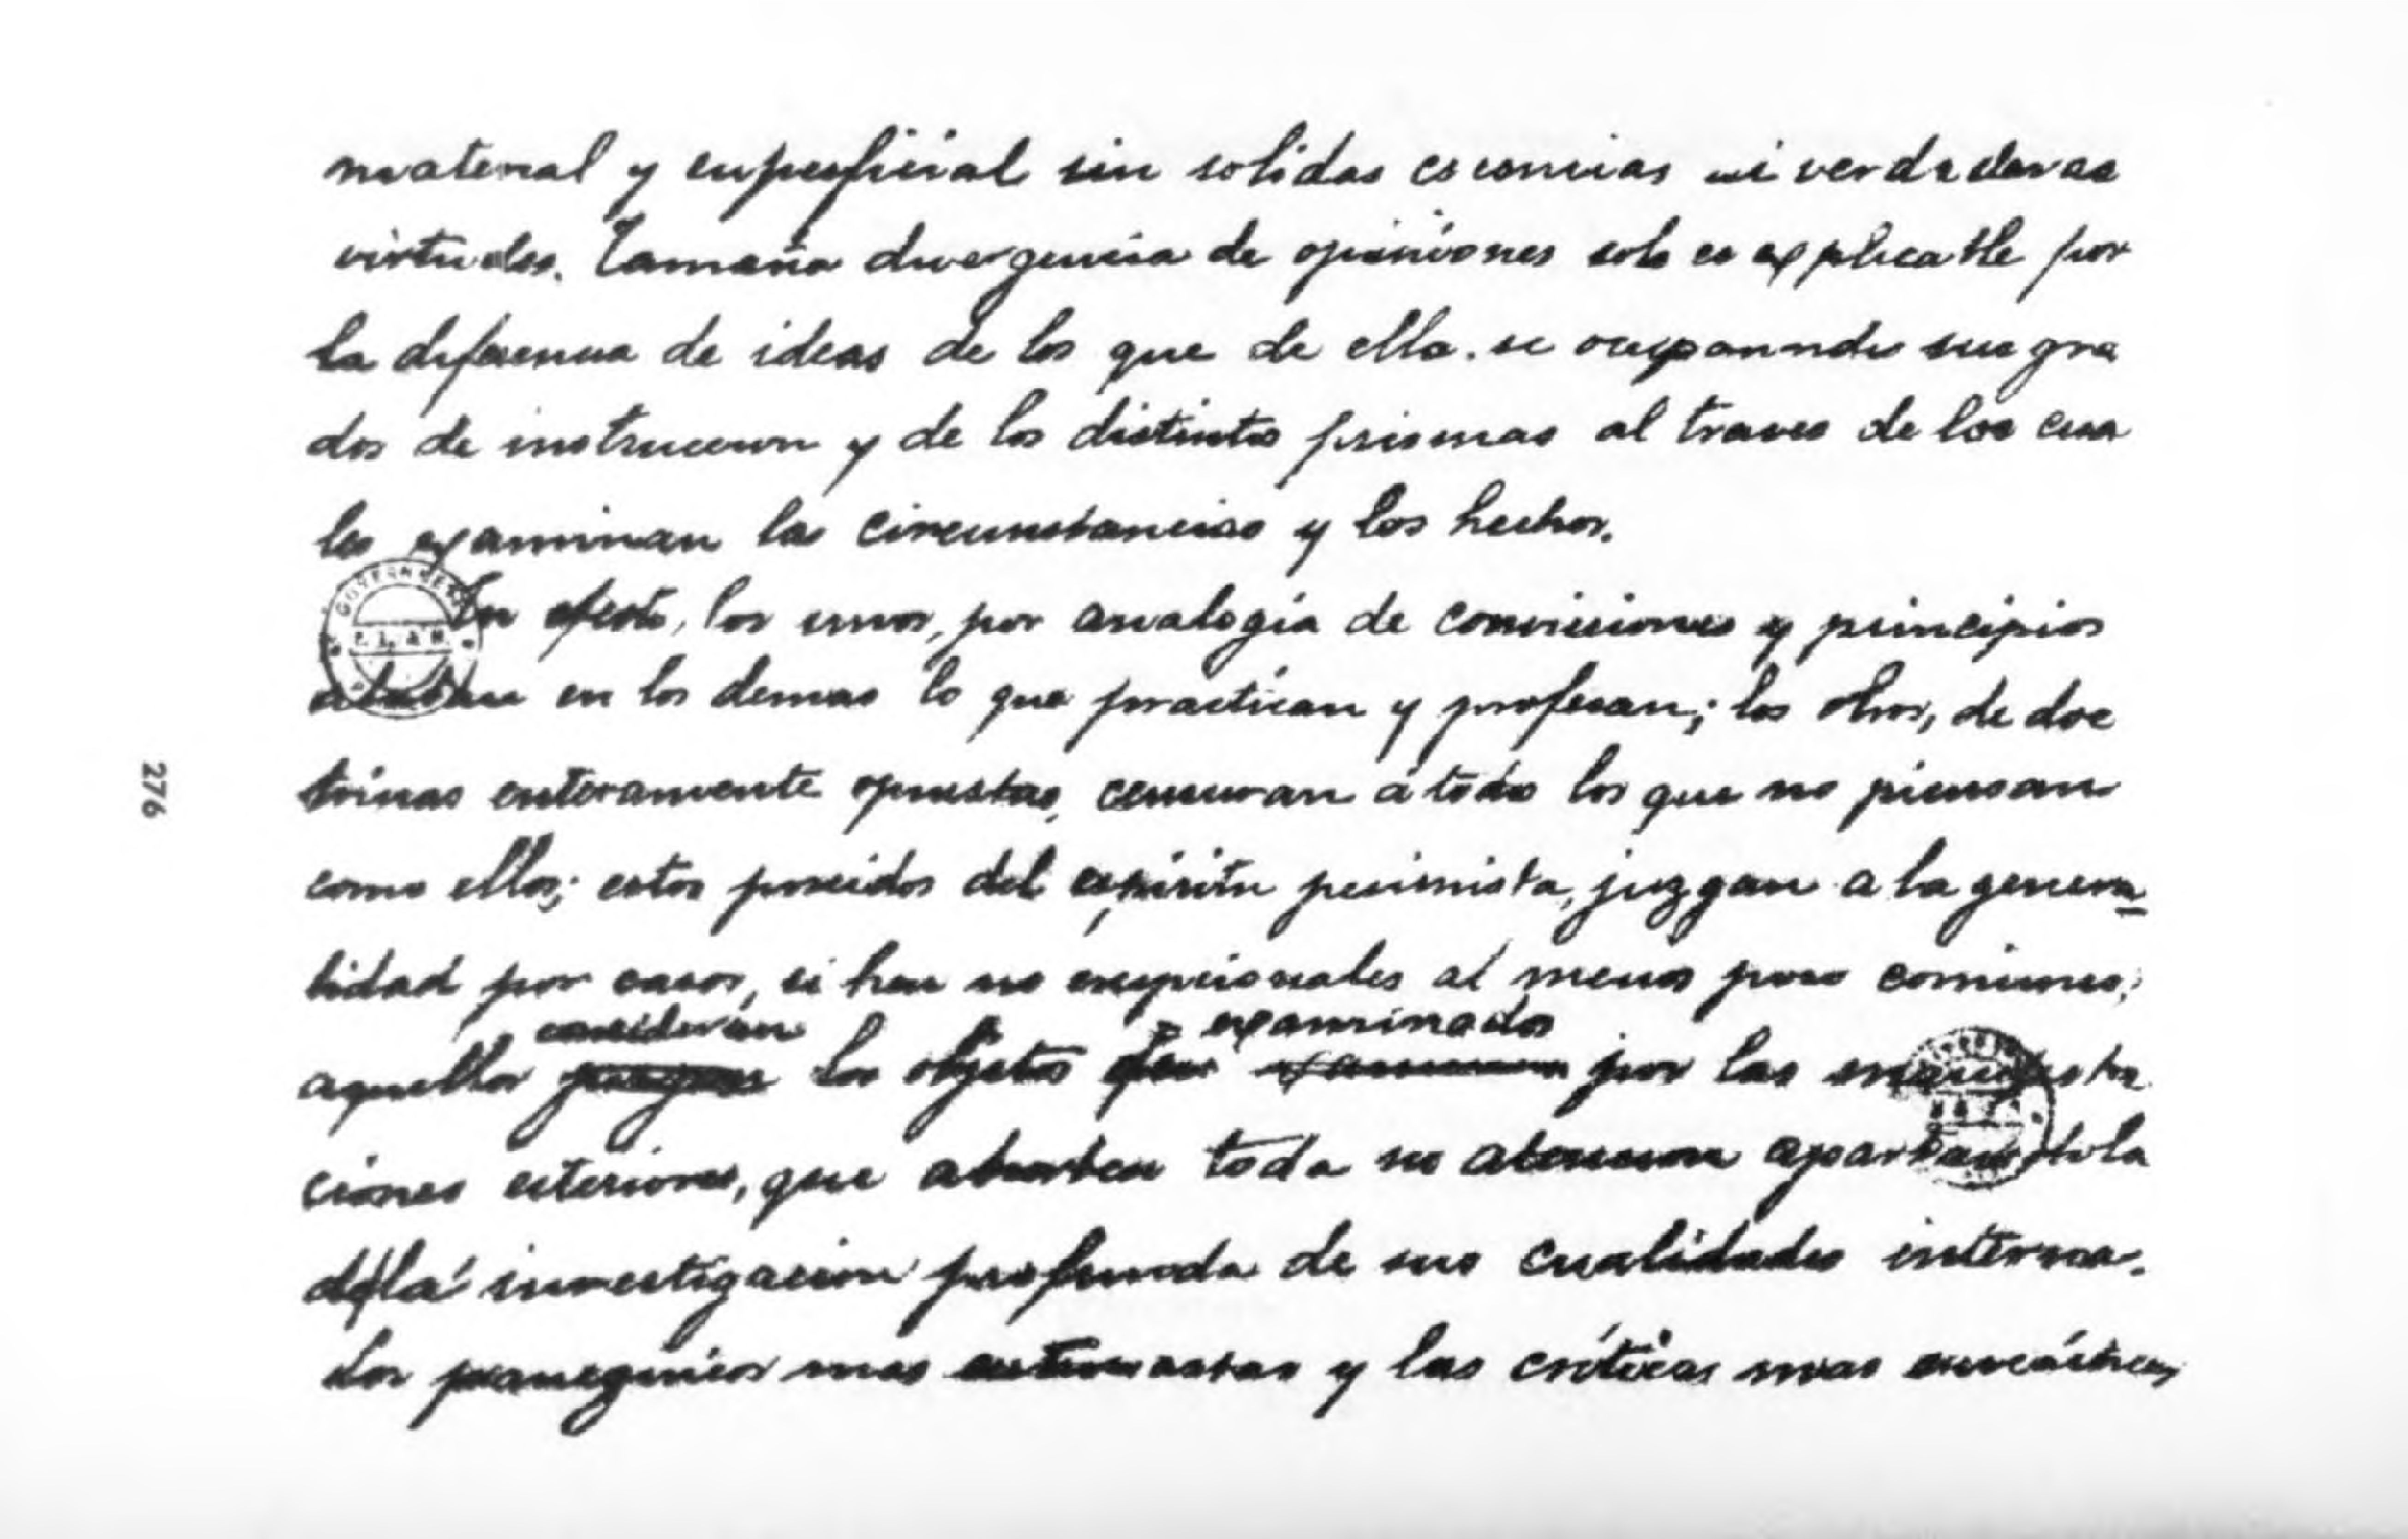 material y superficial sin solidas creencias ni verdaderas
virtudes. Tamaña divergencia de opiniones solo es explicable por
la diferencia de ideas de los que de ella se ocupan de sus gra
dos de instruccion y de los distintos prismas al traves de los cua
les examinan las circunstancias y los hechos.
En efecto, los unos, por analogía de convicciones y principios
alaban en los demas lo que practican y profesan; los otros, de doc
trinas enteramente opuestas, censuran á todos los que no piensan
como ellos; estos poseidos del espiritu pesimista, juzgan a la genera
lidad por casos, si bien no excepcionales al menos poco comunes;
consideran examinados
aquellos juzgan los objetos que examinan por las manifesta
ciones esteriores, que absorben toda su atencion apartandola
de la investigacion profunda de sus cualidades internas.
Los panegiricos mas y las críticas mas sarcásticas,
276